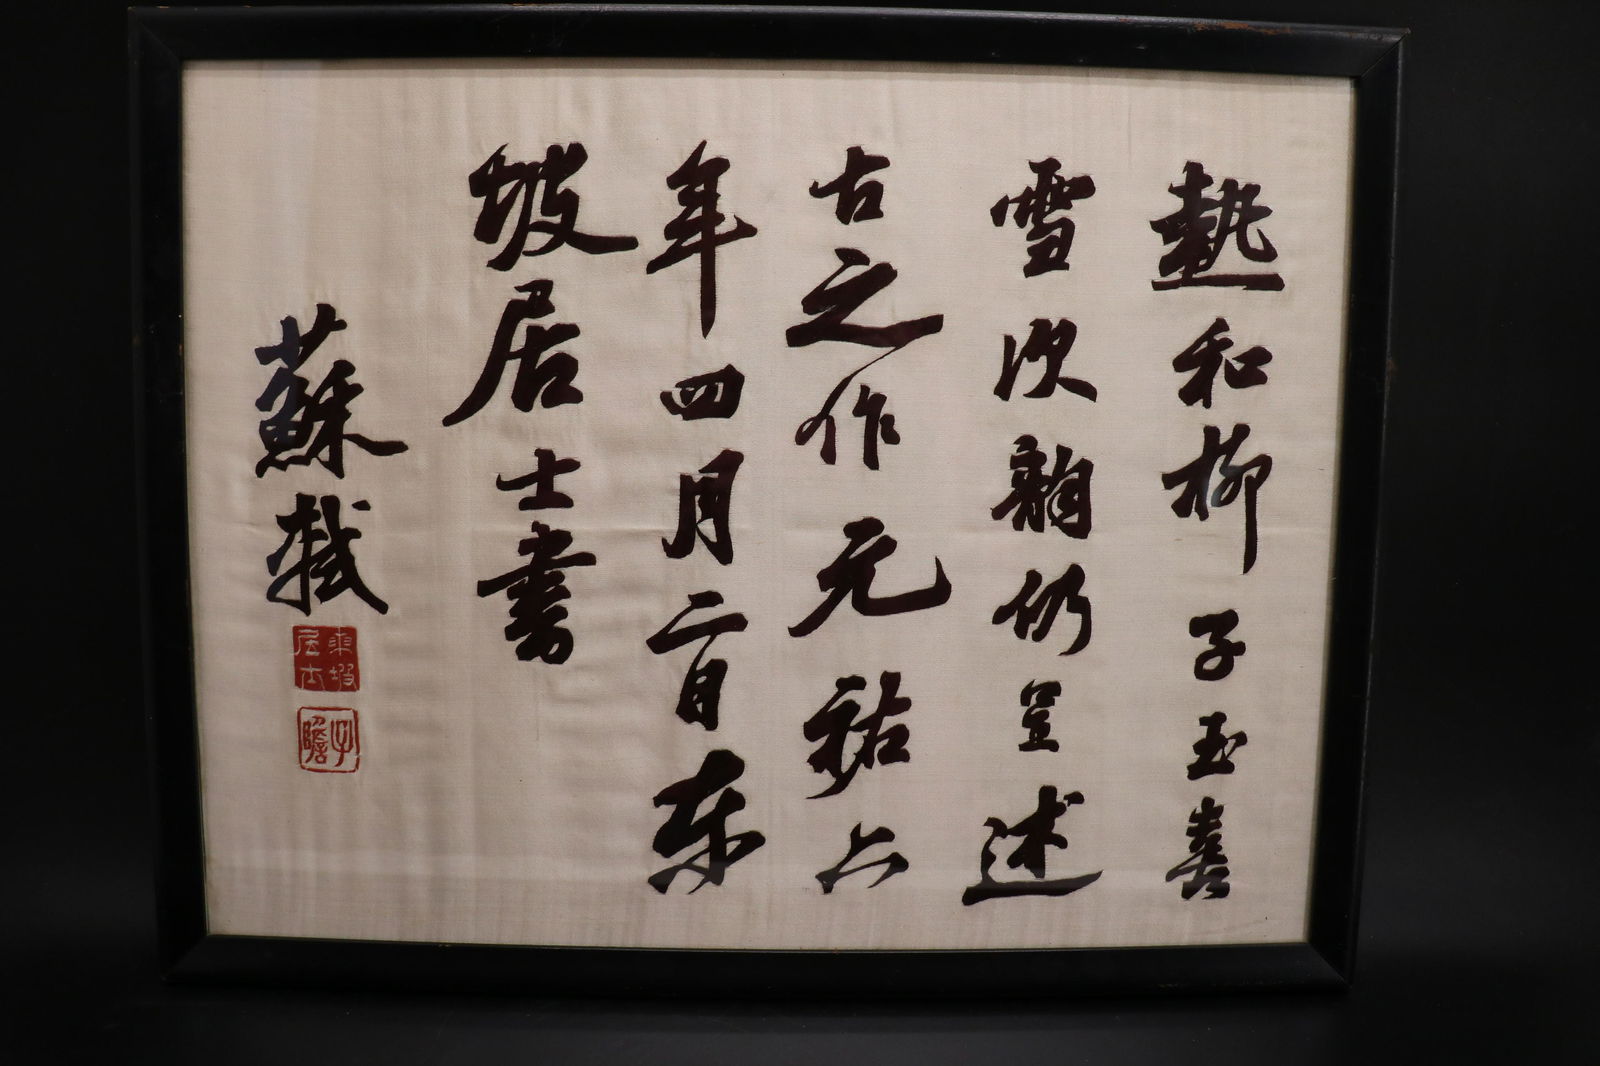 墊和柳子玉喜
雪次韻仍呈述
古之作元祐六
年四月二日東
坡居士書
蘇軾
東坡居士
子瞻